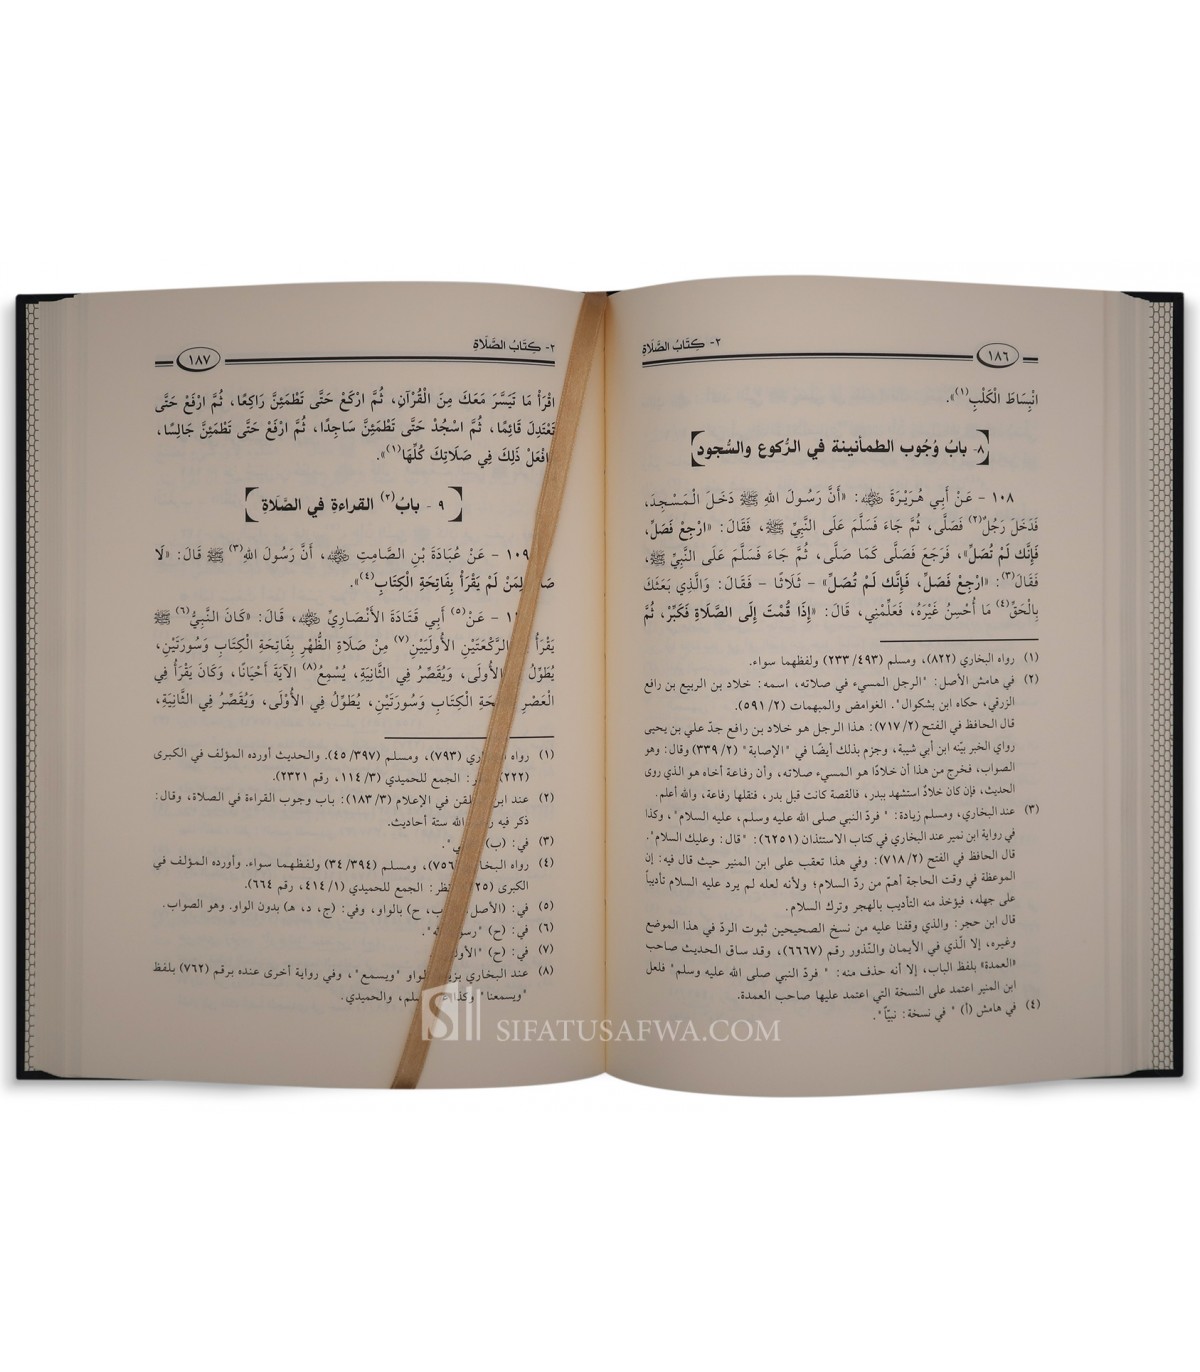 ٢- كِتَابُ الصَّلَاةِ
١٨٦
انْبِسَاطَ الْكَلْبِ(١)».
٨- بابُ وُجُوب الطمأنينة في الرُّكوع والسُّجود
١٠٨ - عَنْ أَبِي هُرَيْرَةَ ﵁: «أَنَّ رَسُولَ اللهِ ﷺ دَخَلَ الْـمَسْجِدَ،
فَدَخَلَ رَجُلٌ(٢) فَصَلَّى، ثُمَّ جَاءَ فَسَلَّمَ عَلَى النَّبِيِّ ﷺ، فَقَالَ: «ارْجِعْ فَصَلِّ،
فَإِنَّك لَمْ تُصَلِّ»، فَرَجَعَ فَصَلَّى كَمَا صَلَّى، ثُمَّ جَاءَ فَسَلَّمَ عَلَى النَّبِيِّ ﷺ،
فَقَالَ(٣): «ارْجِعْ فَصَلِّ، فَإِنَّك لَمْ تُصَلِّ» - ثَلَاثًا - فَقَالَ: وَالَّذِي بَعَثَكَ
بِالْحَقِّ(٤) مَا أُحْسِنُ غَيْرَهُ، فَعَلِّمْنِي، قَالَ: «إِذَا قُمْتَ إِلَى الصَّلَاةِ فَكَبِّرْ، ثُمَّ
(١) رواه البخاري (٨٢٢)، ومسلم (٢٣٣/٤٩٣) ولفظهما سواء.
(٢) في هامش الأصل: "الرجل المسيء في صلاته، اسمه: خلاد بن الربيع بن رافع
الزرقي، حكاه ابن بشكوال". الغوامض والمبهمات (٥٩١/٢).
قال الحافظ في الفتح (٧١٧/٢): هذا الرجل هو خلاد بن رافع جدّ علي بن يحيى
رواي الخبر بيّنه ابن أبي شيبة، وجزم بذلك أيضًا في "الإصابة" (٣٣٩/٢) وقال: وهو
الصواب، فخرج من هذا أن خلادًا هو المسيء صلاته، وأن رفاعة أخاه هو الذي روى
الحديث، فإن كان خلادٌ استشهد ببدر، فالقصة كانت قبل بدر، فنقلها رفاعة، والله أعلم.
(٣) عند البخاري، ومسلم زيادة: " فردّ النبي صلى الله عليه وسلم، عليه السلام"، وكذا
في رواية ابن نمير عند البخاري في كتاب الاستئذان (٦٢٥١): "قال: وعليك السلام".
قال الحافظ في الفتح (٧١٨/٢): وفي هذا تعقب على ابن المنير حيث قال فيه: إن
الموعظة في وقت الحاجة أهمّ من ردّ السلام؛ ولأنه لعله لم يرد عليه السلام تأديباً
على جهله، فيؤخذ منه التأديب بالهجر وترك السلام.
قال ابن حجر: والذي وقفنا عليه من نسخ الصحيحين ثبوت الردّ في هذا الموضع
وغيره، إلا الّذي في الأيمان والنّذور رقم (٦٦٦٧)، وقد ساق الحديث صاحب
«العمدة» بلفظ الباب، إلا أنه حذف منه: " فردّ النبي صلى الله عليه وسلم" فلعل
ابن المنير اعتمد على النسخة التي اعتمد عليها صاحب العمدة.
(٤) في هامش (أ) " في نسخة: نبيّاً".
٢- كِتَابُ الصَّلَاةِ
١٨٧
اقْرَأْ مَا تَيَسَّرَ مَعَكَ مِنَ الْقُرْآنِ، ثُمَّ ارْكَعْ حَتَّى تَطْمَئِنَّ رَاكِعًا، ثُمَّ ارْفَعْ حَتَّى
تَعْتَدِلَ قَائِمًا، ثُمَّ اسْجُدْ حَتَّى تَطْمَئِنَّ سَاجِدًا، ثُمَّ ارْفَعْ حَتَّى تَطْمَئِنَّ جَالِسًا،
افْعَلْ ذَلِكَ فِي صَلَاتِكَ كُلِّهَا(١)».
٩ - بابُ(٢) القراءةِ في الصَّلَاةِ
١٠٩ - عَنْ عُبَادَةَ بْنِ الصَّامِتِ ﵁، أَنَّ رَسُولَ اللهِ(٣) ﷺ قَالَ: «لَا
لِمَنْ لَمْ يَقْرَأْ بِفَاتِحَةِ الْكِتَابِ(٤)».
- عَنْ(٥) أَبِي قَتَادَةَ الأَنْصَارِيِّ ﵁، قَالَ: «كَانَ النَّبِيُّ(٦) ﷺ
يَقْرَأُ الرَّكْعَتَيْنِ الأُولَيَيْنِ(٧) مِنْ صَلَاةِ الظُّهْرِ بِفَاتِحَةِ الْكِتَابِ وَسُورَتَيْنِ،
يُطَوِّلُ الأُولَى، وَيُقَصِّرُ فِي الثَّانِيَةِ، يُسْمِعُ(٨) الآيَةَ أَحْيَانًا، وَكَانَ يَقْرَأُ فِي
الْعَصْرِ الْكِتَابِ وَسُورَتَيْنِ، يُطَوِّلُ فِي الأُوْلَى، وَيُقَصِّرُ فِي الثَّانِيَةِ،
(١) رواه (٧٩٣)، ومسلم (٤٥/٣٩٧). والحديث أورده المؤلف في الكبرى
(٢٢٢) الجمع للحميدي (١١٤/٣، رقم ٢٣٢١).
(٢) عند في الإعلام (١٨٣/٣): باب وجوب القراءة في الصلاة، وقال:
ذكر فيه الله ستة أحاديث.
(٣) في: (ب)
(٤) رواه ومسلم (٣٤/٣٩٤) ولفظهما سواء. وأورده المؤلف في
الكبرى الجمع للحميدي (٤١٤/١، رقم ٦٦٤).
(٥) في: (الأصل، ب، ح) بالواو، وفي: (ج، د، هـ) بدون الواو. وهو الصواب.
(٦) في: (ح)
(٧) في: (ح)
(٨) عند البخاري الواو "ويسمع"، وفي رواية أخرى عنده برقم (٧٦٢) بلفظ
"ويسمعنا" والحميدي.
SIFATUSAFWA.COM